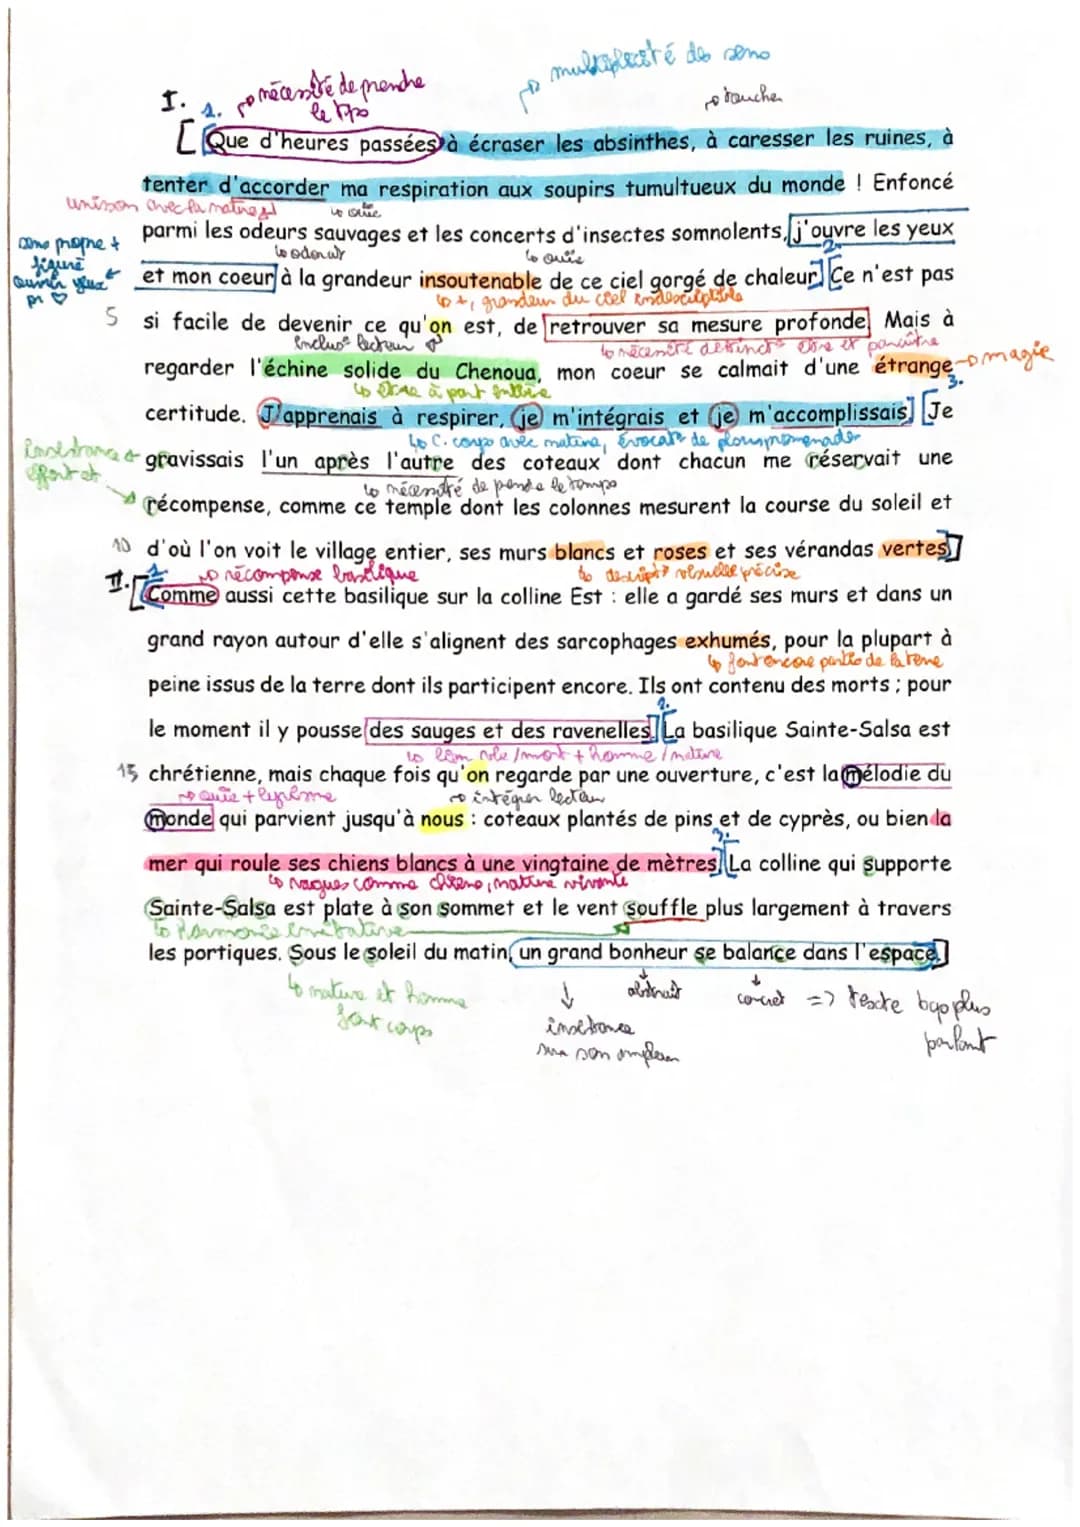 multiplicité des sens
nécessité de prendre
I.
le tps
toucher
1.
Que d'heures passées à écraser les absinthes, à caresser les ruines, à
tenter d'accorder ma respiration aux soupirs tumultueux du monde ! Enfoncé
unison avec la nature
ouïe
parmi les odeurs sauvages et les concerts d'insectes somnolents, j'ouvre les yeux
sens propre +
figuré
ouvrir yeux
odorat
ouïe
2.
et mon coeur à la grandeur insoutenable de ce ciel gorgé de chaleur. Ce n'est pas
+, grandeur du ciel indescriptible
5 si facile de devenir ce qu'on est, de retrouver sa mesure profonde. Mais à
lecteur
nécessité être et paraître
regarder l'échine solide du Chenoua, mon coeur se calmait d'une étrange
magie
être à part entière
3.
certitude. J'apprenais à respirer, je m'intégrais et je m'accomplissais. Je
C. corps avec nature,
gravissais l'un après l'autre des coteaux dont chacun me réservait une
effort
nécessité de prendre le temps
récompense, comme ce temple dont les colonnes mesurent la course du soleil et
10 d'où l'on voit le village entier, ses murs blancs et roses et ses vérandas vertes.
récompense basilique
visuelle précise
II. 1.
Comme aussi cette basilique sur la colline Est : elle a gardé ses murs et dans un
grand rayon autour d'elle s'alignent des sarcophages exhumés, pour la plupart à
font encore partie de la terre
peine issus de la terre dont ils participent encore. Ils ont contenu des morts ; pour
2.
le moment il y pousse des sauges et des ravenelles. La basilique Sainte-Salsa est
/mort + homme / nature
15 chrétienne, mais chaque fois qu'on regarde par une ouverture, c'est la mélodie du
intégrer lecteur
monde qui parvient jusqu'à nous : coteaux plantés de pins et de cyprès, ou bien la
3.
mer qui roule ses chiens blancs à une vingtaine de mètres. La colline qui supporte
vagues comme chiens, nature vivante
Sainte-Salsa est plate à son sommet et le vent souffle plus largement à travers
harmonie imitative
les portiques. Sous le soleil du matin, un grand bonheur se balance dans l'espace.
nature et homme
font corps
insistance
sur son ampleur
abstrait
concret => texte bcp plus
parlant